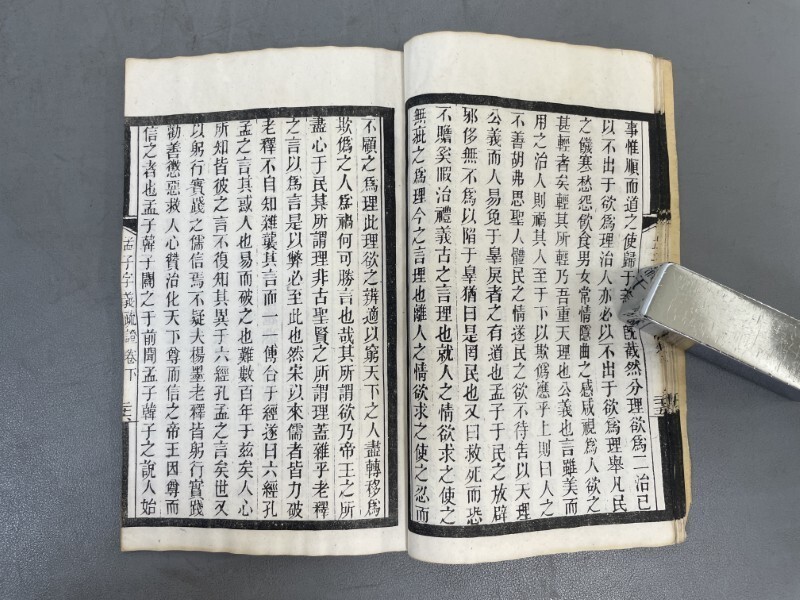 事惟順而道之使歸于旣截然分理欲爲二治己
以不出于欲爲理治人亦必以不出于欲爲理舉凡民
之饑寒愁怨飲食男女常情隱曲之感咸視爲人欲之
甚輕者矣輕其所輕乃吾重天理也公義也言雖美而
用之治人則禍其人至于下以欺僞應乎上則曰人之
不善胡弗思聖人體民之情遂民之欲不待告以天理
公義而人易免于辠戾者之有道也孟子于民之放辟
邪侈無不爲以陷于辠猶曰是罔民也又曰救死而恐
不贍奚暇治禮義古之言理也就人之情欲求之使之
無疵之爲理今之言理也離人之情欲求之使之忍而
不顧之爲理此理欲之辨適以窮天下之人盡轉移爲
欺僞之人爲禍何可勝言也哉其所謂欲乃帝王之所
盡心于民其所謂理非古聖賢之所謂理蓋雜乎老釋
之言以爲言是以弊必至此也然宋以來儒者皆力破
老釋不自知雜襲其言而一一傅合于經遂曰六經孔
孟之言其惑人也易而破之也難數百年于玆矣人心
所知皆彼之言不復知其異于六經孔孟之言矣世又
以躬行實踐之儒信焉不疑夫楊墨老釋皆躬行實踐
勸善懲惡救人心贊治化天下尊而信之帝王因尊而
信之者也孟子韓子闢之于前聞孟子韓子之說人始
孟子字義疏證 卷下